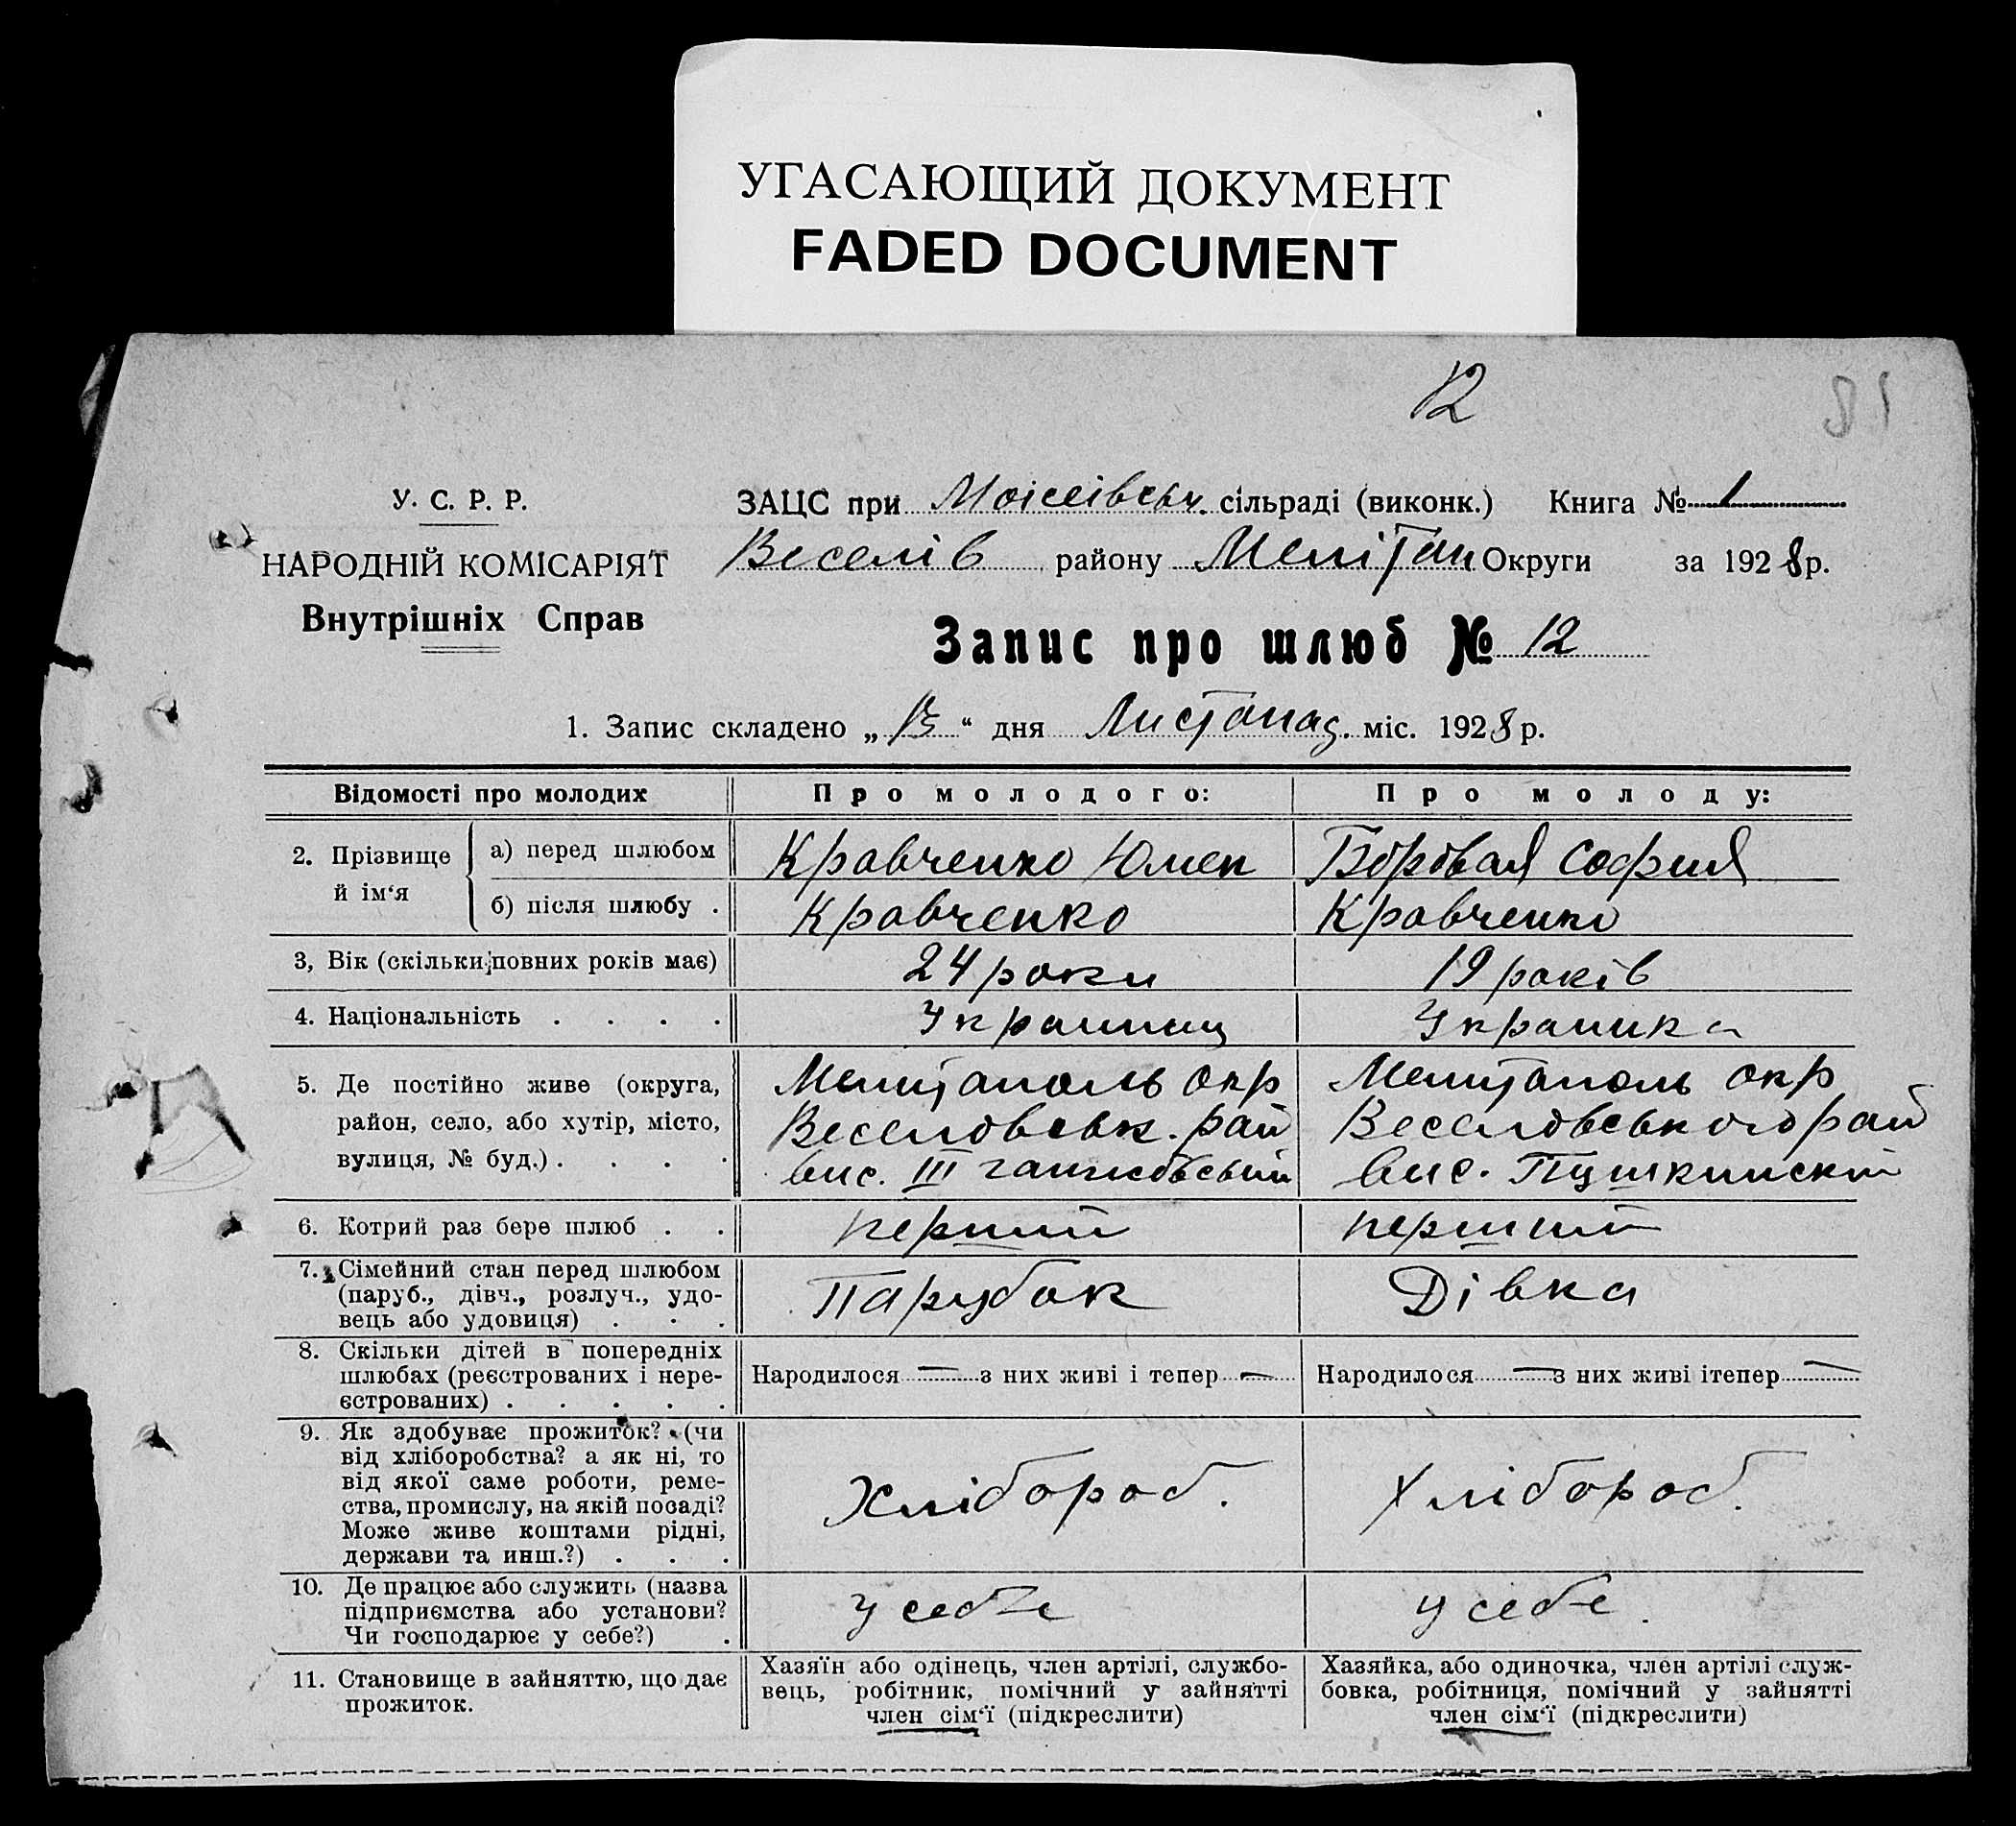 УГАСАЮЩИЙ ДОКУМЕНТ
FADED DOCUMENT
12
81
У. С. Р. Р.
НАРОДНІЙ КОМІСАРІЯТ
Внутрішніх Справ
ЗАЦС при Моісеівськ. сільраді (виконк.) Книга № 1
Веселів району Меліտոп Округи за 1928 р.
Запис про шлюб № 12
1. Запис складено „13“ дня Листопад. міс. 1928 р.
Відомості про молодих
Про молодого:
Про молоду:
2. Прізвище й ім‘я
а) перед шлюбом
Кравченко
Боровая София
б) після шлюбу .
Кравченко
Кравченко
3, Вік (скільки повних років має)
24 роки
19 років
4. Національність . . . .
Украинец
Украинка
5. Де постійно живе (округа,
район, село, або хутір, місто,
вулиця, № буд.) . . . .
Мелитополь окр
Веселовськ. рай
вис. III
Мелитополь окр
Веселовського рай
вис. Пушкинский
6. Котрий раз бере шлюб . .
перший
перший
7. Сімейний стан перед шлюбом
(паруб., дівч., розлуч., удо-
вець або удовиця) . . .
Парубок
Дівка
8. Скільки дітей в попередніх
шлюбах (реєстрованих і нере-
єстрованих) . . . . .
Народилося — з них живі і тепер —
Народилося — з них живі ітепер —
9. Як здобуває прожиток? (чи
від хліборобства? а як ні, то
від якої саме роботи, реме-
ства, промислу, на якій посаді?
Може живе коштами рідні,
держави та инш.?) . . .
Хлібороб.
Хлібороб.
10. Де працює або служить (назва
підприємства або установи?
Чи господарює у себе?) .
у себе
у себе.
11. Становище в зайняттю, що дає
прожиток.
Хазяїн або одінець, член артілі, службо-
вець, робітник, помічний у зайнятті
член сім‘ї (підкреслити)
Хазяйка, або одиночка, член артілі служ-
бовка, робітниця, помічний у зайнятті
член сім‘ї (підкреслити)